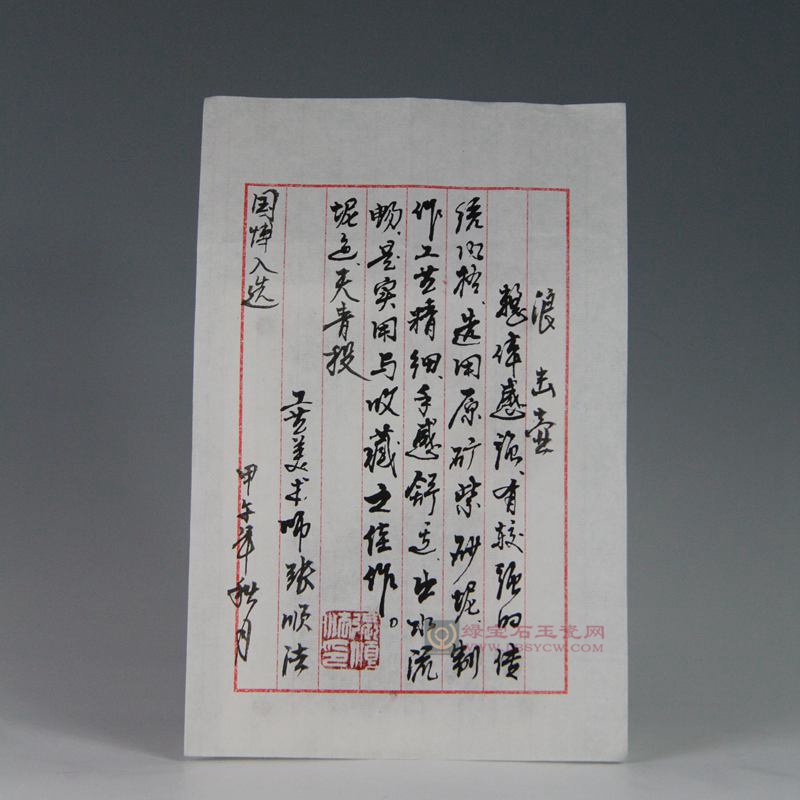 浪击壶
整体感强、有较强的传
统风格、选用原矿紫砂坭、制
作工艺精细、手感舒适、出水流
畅、是实用与收藏之佳作。
坭色、天青投
工艺美术师张顺法
国博入选
甲午年秋月
绿宝石玉瓷网